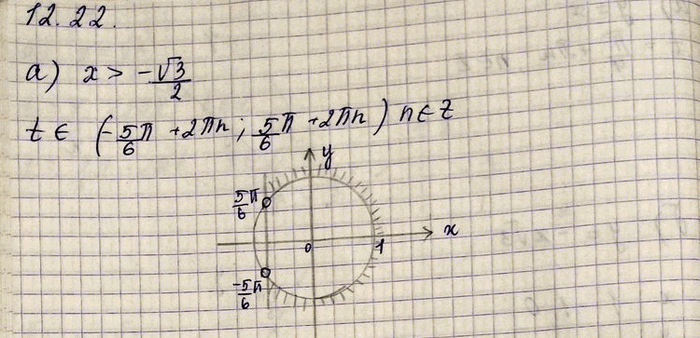 12.22.
а) x > -√3/2
t ∈ (-5/6π + 2πn; 5/6π + 2πn) n ∈ Z
y
5/6π
x
0
1
-5/6π